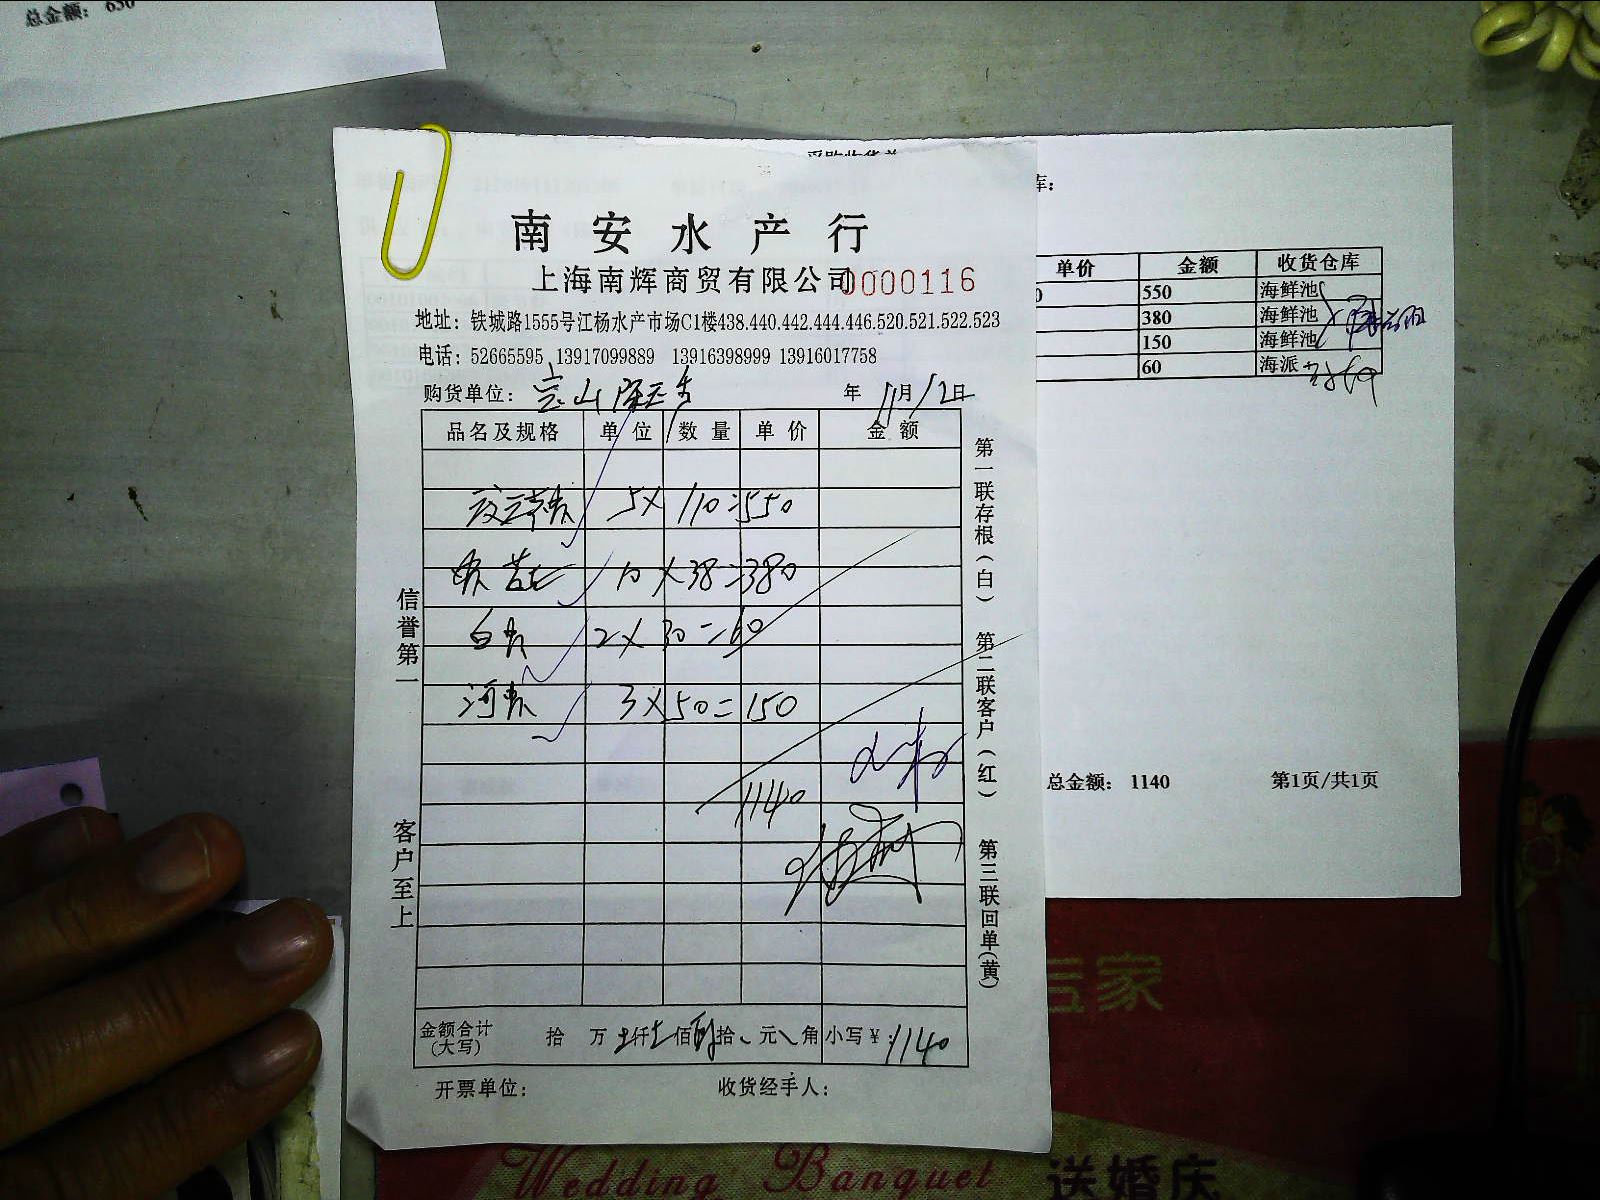 总金额： 650
采购收货单
南安水产行
上海南辉商贸有限公司 0000116
地址：铁城路1555号江杨水产市场C1楼438.440.442.444.446.520.521.522.523
电话：52665595 13917099889 13916398999 13916017758
购货单位： 宝山 年 11月12日
品名及规格 单位 数量 单价 金额
5×110=550
10×38=380
白 2×30=60
河 3×50=150
1140
金额合计(大写) 拾 万 仟 佰 拾 元 角 小写¥：1140
开票单位： 收货经手人：
信誉第一 客户至上
第一联存根(白) 第二联客户(红) 第三联回单(黄)
库：
单价 金额 收货仓库
0 550 海鲜池
380 海鲜池
150 海鲜池
60 海派
总金额： 1140 第1页/共1页
家
Wedding Banquet 送婚庆